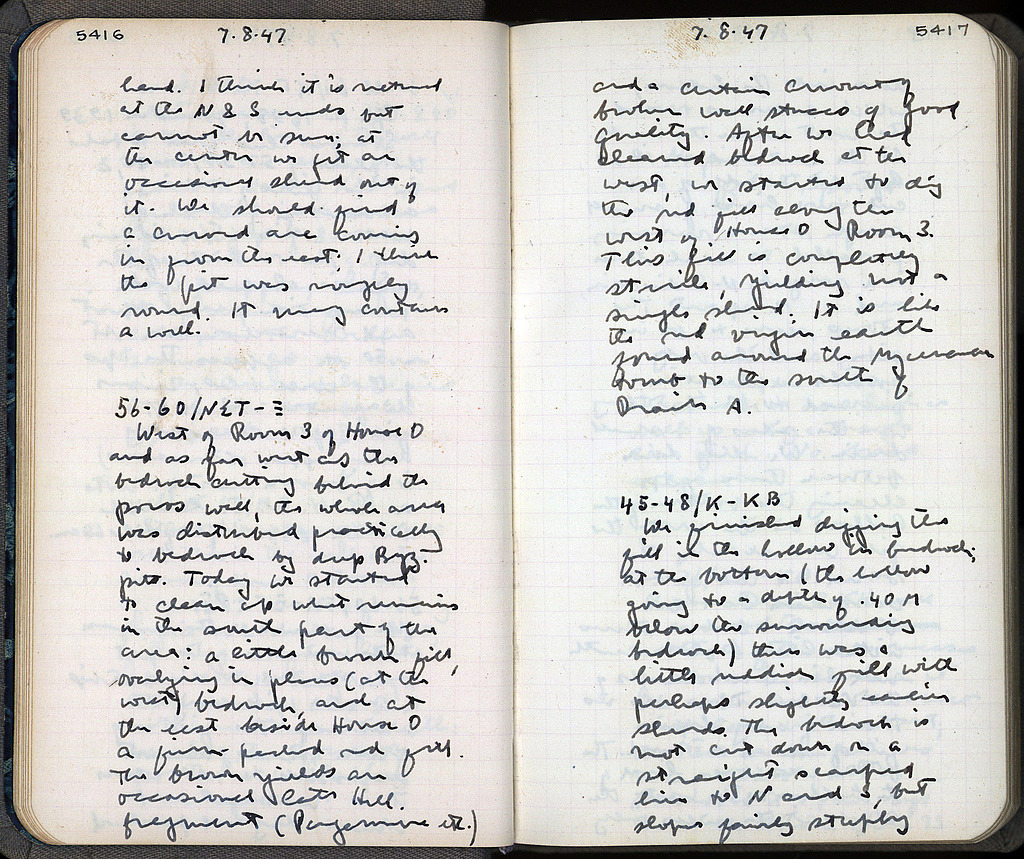 5416
7.8.47
hard. I think it is natural
at the N & S ends but
cannot be sure; at
the center we get an
occasional sherd out of
it. We should find
a curved area coming
in from the east. I think
the pit was roughly
round. It may contain
a well.
56-60/ΝΣΤ-Ξ
West of Room 3 of House D
and as far west as the
bedrock cutting behind the
poros wall, the whole area
was disturbed practically
to bedrock by deep Byz.
pits. Today we started
to clean up what remains
in the south part of the
area: a little brown fill,
overlying in places (at the
west) bedrock, and at
the east beside House D
a firm packed red fill.
The brown yields an
occasional late Hell.
fragment (Pergamene etc.)
7.8.47
5417
and a certain amount of
broken wall stucco of good
quality. After we had
cleared bedrock at the
west, we started to dig
the red fill along the
west of House D Room 3.
This fill is completely
sterile, yielding not a
single sherd. It is like
the red virgin earth
found around the Mycenaean
tomb to the south of
Drain A.
45-48/Κ-ΚΒ
We finished digging the
fill in the hollow in bedrock;
at the bottom (the hollow
going to a depth of .40 M
below the surrounding
bedrock) there was a
little reddish fill with
perhaps slightly earlier
sherds. The bedrock is
not cut down in a
straight scarped
line to N and S, but
slopes fairly steeply